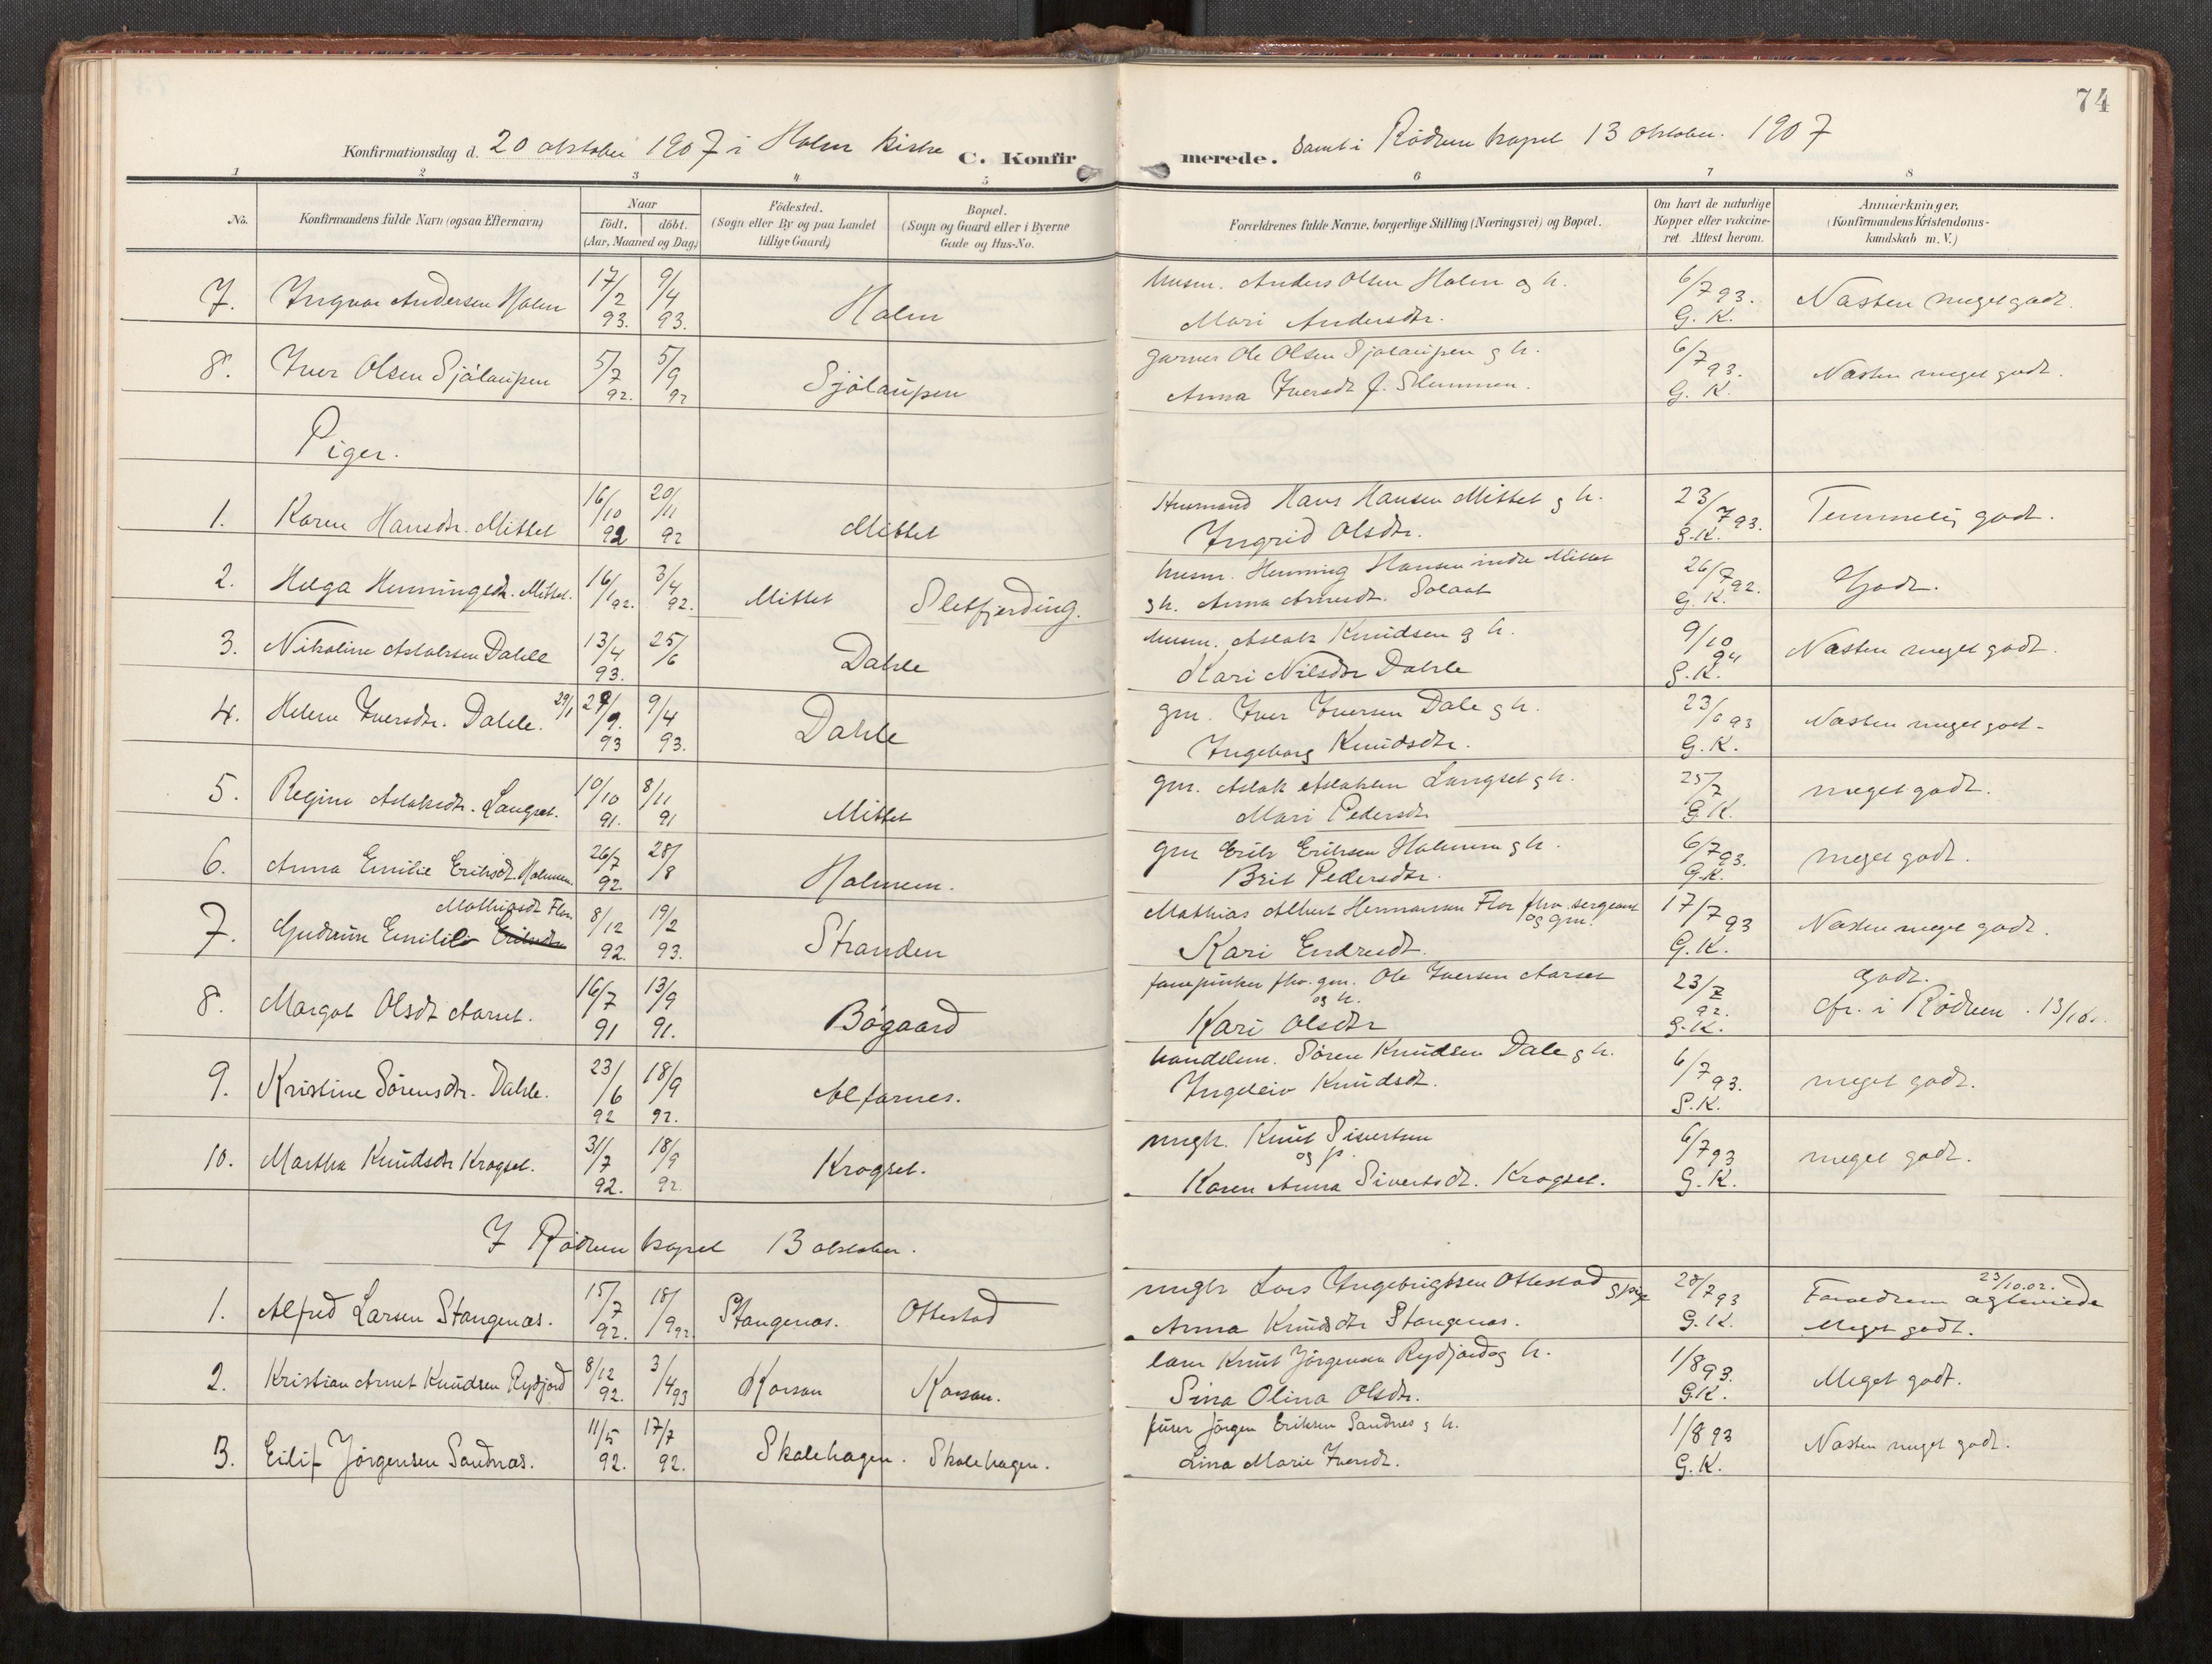 74
Konfirmationsdag d. 20 oktober 1907 i Holm kirke C. Konfirmerede. samt i Rødven kapel 13 oktober. 1907
1 2 3 4 5 6 7 8
No. Konfirmandens fulde Navn (ogsaa Efternavn) Naar födt. döbt. (Aar, Maaned og Dag) Födested. (Sogn eller By og paa Landet tillige Gaard) Bopæl. (Sogn og Gaard eller i Byerne Gade og Hus-No. Forældrenes fulde Navne, borgerlige Stilling (Næringsvei) og Bopæl. Om havt de naturlige Kopper eller vakcineret. Attest herom. Anmærkninger. (Konfirmandens Kristendomskundskab m. V.)
7. Ingvar Andersen Holm 17/2 93. 9/4 93. Holm husm. Anders Olsen Holm og h. Mari Andersdtr. 6/7 93. G. K. Næsten meget godt.
8. Iver Olsen Sjølaupen 5/7 92. 5/9 92 Sjølaupen garver Ole Olsen Sjølaupen g h. Anna Iversdt f. Slemmen. 6/7 93. G. K. Næsten meget godt.
Piger.
1. Karen Hansdtr. Mittet 16/10 92 20/11 92 Mittet Husmand Hans Hansen Mittet g h. Ingrid Olsdtr. 23/7 93. G.K. Temmelig godt.
2. Helga Henningsdt. Mittet. 16/1 92. 3/4 92. Mittet Sletfjerding. husm. Henning Hansen indre Mittet g h. Anna Arnesdt. Solaat 26/7 92. G. K. Godt.
3. Nikoline Aslaksen Dahle 13/4 93. 25/6 Dahle husm. Aslak Knudsen g h. Kari Nilsdtr Dahle 9/10 94 G.K. Næsten meget godt.
4. Helene Iversdtr. Dahle. 29/1 29/9. 93 9/4 93. Dahle gm. Iver Iversen Dale g h. Ingeborg Knudsdtr. 23/6 93 G.K. Næsten meget godt -
5. Regine Aslaksdt. Langset. 10/10 91. 8/11 91 Mittet gm. Aslak Aslaksen Langset g h. Mari Pedersdt 25/7 G.K. meget godt.
6. Anna Emilie Eriksdt. Holmem. 26/7 92. 28/8 Holmem. gm Erik Eriksen Holmem g h. Brit Pedersdtr. 6/7 93. G.K. meget godt.
7. Gudrun Emilie Eriksdtr Mathiasdt Flor 8/12 92. 19/2 93. Stranden Mathias Albert Hermansen Flor fhv. sergeant og gm. Kari Endresdt. 17/7 93 G.K. Næsten meget godt.
8. Margot Olsdt Aarset. 16/7 91 13/9 91. Bøgaard fhv. gm. Ole Iversen Aarset og h. Kari Olsdtr 23/7 92. G.K. godt. cfr. i Rødven. 13/10.
9. Kristine Sørensdtr. Dahle. 23/6 92 18/9 92. Alfarnes. handelsm. Søren Knudsen Dale g h. Ingeleiv Knudsdt. 6/7 93. G.K. meget godt.
10. Martha Knudsdtr Krogset. 31/7 92. 18/9 92. Krogset. ungk. Knut Sivertsen og p. Karen Anna Sivertsdt. Krogset. 6/7 93 G.K. meget godt.
I Rødven kapel 13 oktober.
1. Alfred Larsen Stangenæs. 15/7 92. 18/9 92 Stangenæs. Ottestad ungk Lars Ingebrigtsen Ottestad g pige Anna Knudsdtr Stangenæs. 28/7 93 G.K. Forældrene ægteviede 23/10.02. Meget godt.
2. Kristian Arnet Knudsen Rydjord 8/12 92. 3/4 93 Korsan Korsan. lærer Knut Jörgensen Rydjord og h. Sina Olina Olsdtr. 1/8 93. G.K. Meget godt.
3. Eilif Jørgensen Sandnæs. 11/5 92. 17/7 92. Skolehagen. Skolehagen. Jörgen Eriksen Sandnes g h. Lina Marie Iversdt. 1/8 93 G.K. Næsten meget godt.